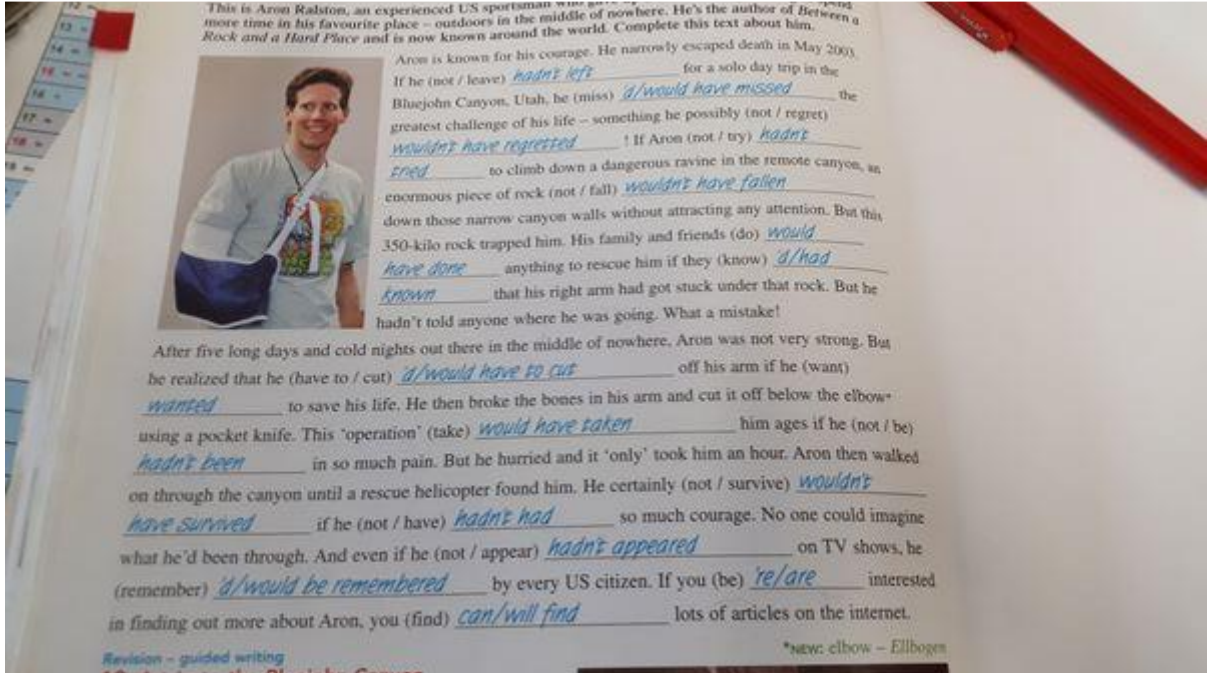 This is Aron Ralston, an experienced US sportsman who
more time in his favourite place – outdoors in the middle of nowhere. He's the author of Between a
Rock and a Hard Place and is now known around the world. Complete this text about him.
Aron is known for his courage. He narrowly escaped death in May 2003.
If he (not / leave) hadn't left for a solo day trip in the
Bluejohn Canyon, Utah, he (miss) 'd/would have missed the
greatest challenge of his life – something he possibly (not / regret)
wouldn't have regretted ! If Aron (not / try) hadn't
tried to climb down a dangerous ravine in the remote canyon, an
enormous piece of rock (not / fall) wouldn't have fallen
down those narrow canyon walls without attracting any attention. But this
350-kilo rock trapped him. His family and friends (do) would
have done anything to rescue him if they (know) 'd/had
known that his right arm had got stuck under that rock. But he
hadn't told anyone where he was going. What a mistake!
After five long days and cold nights out there in the middle of nowhere, Aron was not very strong. But
he realized that he (have to / cut) 'd/would have to cut off his arm if he (want)
wanted to save his life. He then broke the bones in his arm and cut it off below the elbow*
using a pocket knife. This 'operation' (take) would have taken him ages if he (not / be)
hadn't been in so much pain. But he hurried and it 'only' took him an hour. Aron then walked
on through the canyon until a rescue helicopter found him. He certainly (not / survive) wouldn't
have survived if he (not / have) hadn't had so much courage. No one could imagine
what he'd been through. And even if he (not / appear) hadn't appeared on TV shows, he
(remember) 'd/would be remembered by every US citizen. If you (be) 're/are interested
in finding out more about Aron, you (find) can/will find lots of articles on the internet.
*NEW: elbow – Ellbogen
Revision – guided writing